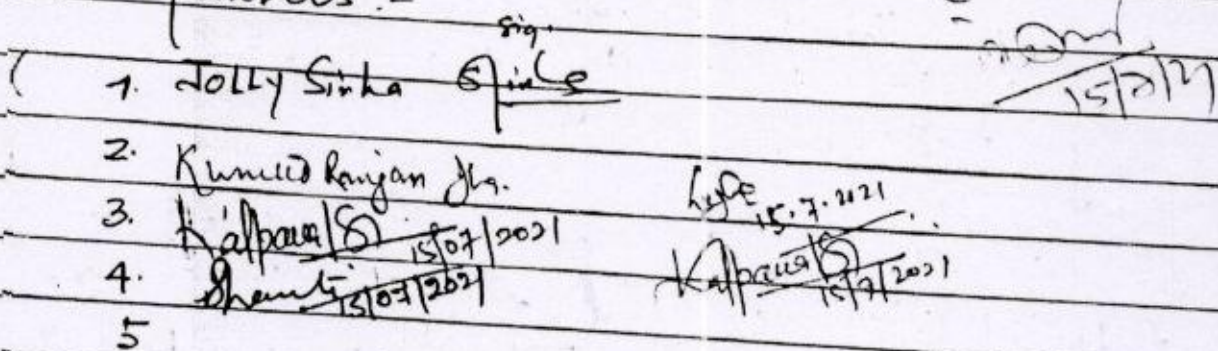 sig.
1. Jolly Sinha
15/7/21
2. Kumud Ranjan Jha.
15.7.2021
3. Kalpana 15/07/2021
Kalpana 15/7/2021
4. Shanti 15/07/2021
5